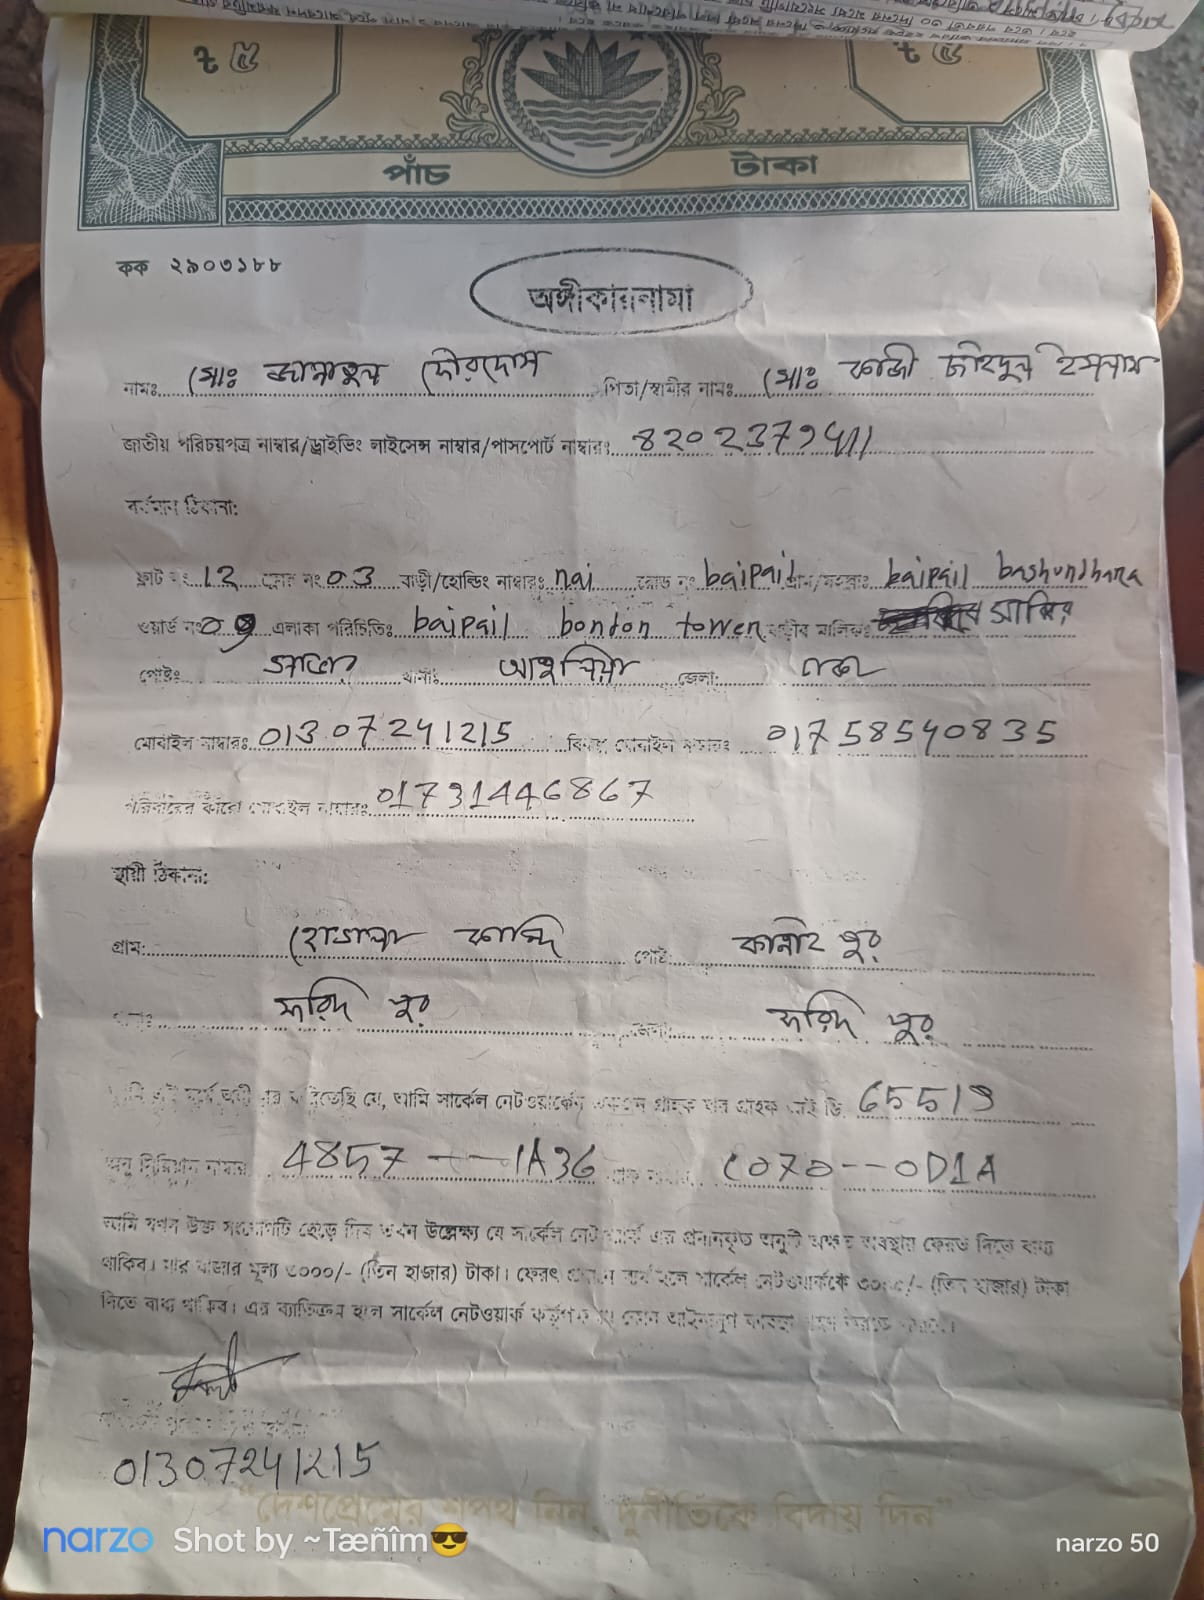 ৫ ৳
৫ ৳
পাঁচ টাকা
কক ২৯০৩১৮৮
অঙ্গীকারনামা
নামঃ মোঃ জান্নাতুল ফেরদৌস পিতা/স্বামীর নামঃ মোঃ কাজী জহিদুল ইসলাম
জাতীয় পরিচয়পত্র নাম্বার/ড্রাইভিং লাইসেন্স নাম্বার/পাসপোর্ট নাম্বারঃ 8202379411
বর্তমান ঠিকানা:
ফ্লাট নং 12 ফ্লোর নং 03 বাড়ী/হোল্ডিং নাম্বারঃ nai রোড নং baipail গ্রাম/মহল্লাঃ baipail bashundhara
ওয়ার্ড নং 09 এলাকা পরিচিতিঃ baipail bondon tower বাড়ীর মালিকঃ সাব্বির
পোষ্টঃ থানাঃ আশুলিয়া জেলা: ঢাকা
মোবাইল নাম্বারঃ 01307241215 বিকল্প মোবাইল নাম্বারঃ 01758540835
পরিবারের কারো মোবাইল নাম্বারঃ 01731446867
স্থায়ী ঠিকানা:
গ্রাম: কান্দি পোষ্ট: কানাই পুর
থানাঃ ফরিদ পুর জেলা: ফরিদ পুর
আমি এই মর্মে অঙ্গীকার করিতেছি যে, আমি সার্কেল নেটওয়ার্কের একজন গ্রাহক যার গ্রাহক আই ডি 65519
অনু সিরিয়াল নাম্বার 4857 -- -1A36 ম্যাক নাম্বার C070--0D1A
আমি যখন উক্ত সংযোগটি ছেড়ে দিব তখন উল্লেক্ষ্য যে সার্কেল নেটওয়ার্ক এর প্রদানকৃত অনুটি অক্ষত অবস্থায় ফেরত দিতে বাধ্য
থাকিব। যার বাজার মূল্য ৩০০০/- (তিন হাজার) টাকা। ফেরৎ প্রদানে ব্যর্থ হলে সার্কেল নেটওয়ার্ককে ৩০০০/- (তিন হাজার) টাকা
দিতে বাধ্য থাকিব। এর ব্যতিক্রম হলে সার্কেল নেটওয়ার্ক কর্তৃপক্ষ যে কোন আইনানুগ ব্যবস্থা গ্রহন করিতে পারবে।
01307241215
"দেশপ্রেমের শপথ নিন, দুর্নীতিকে বিদায় দিন"
narzo Shot by ~Tæñîm😎 narzo 50